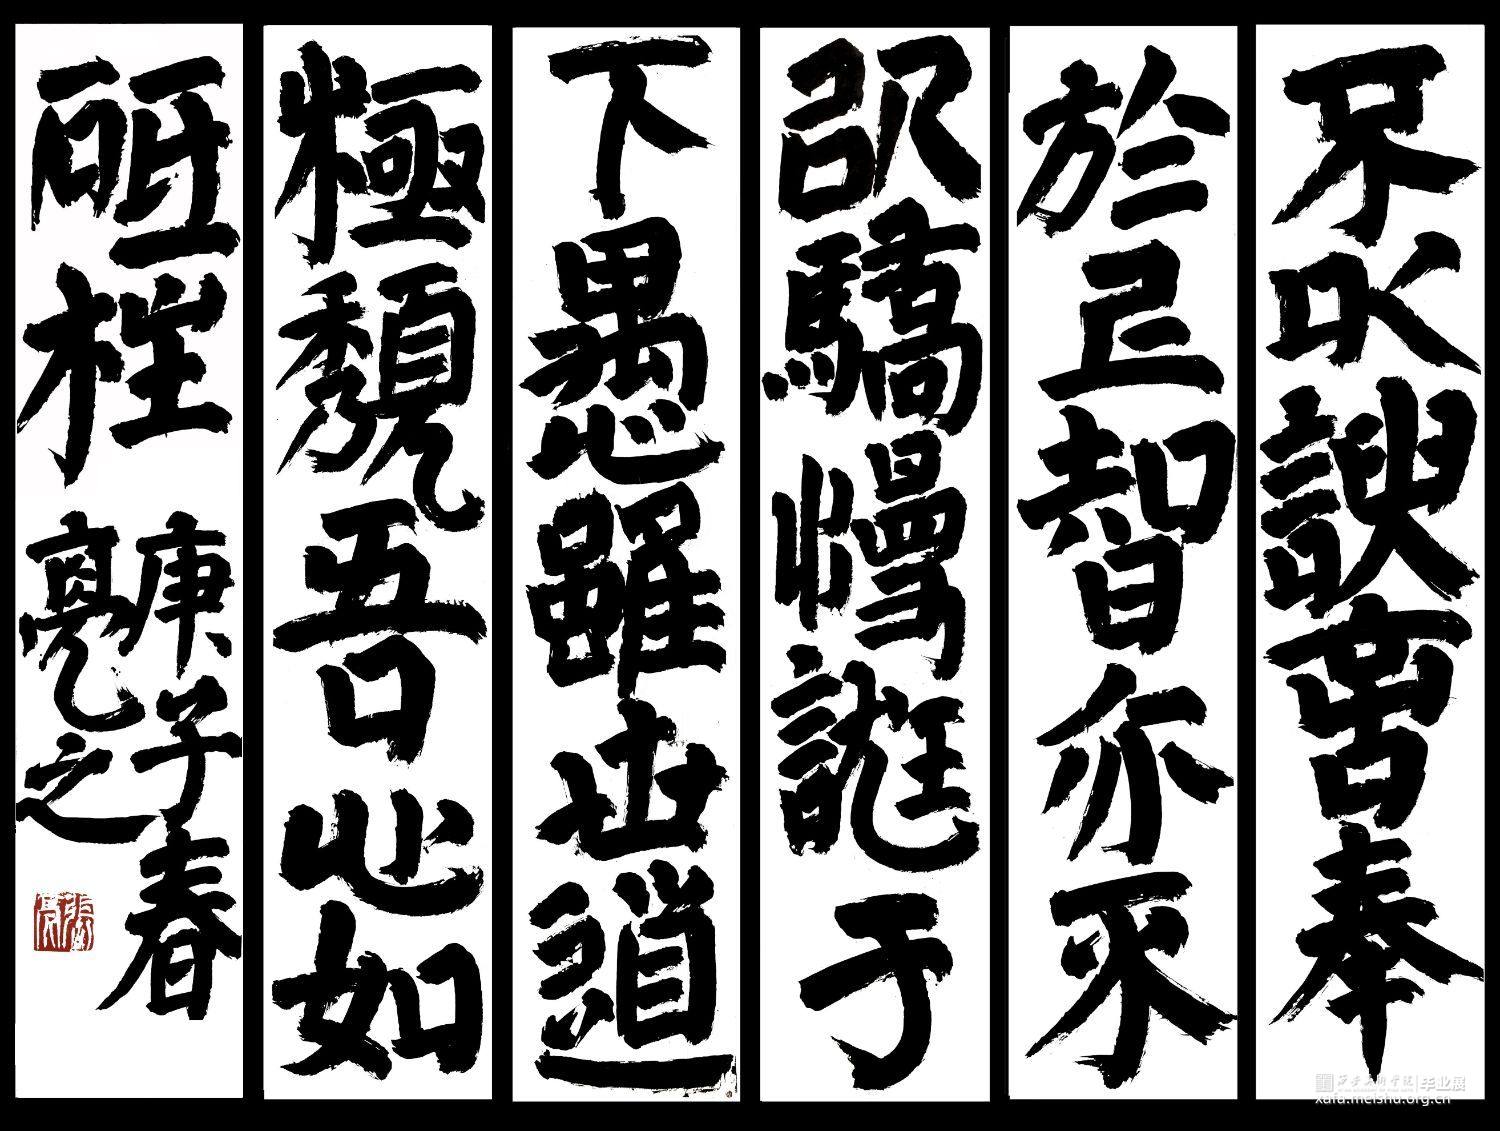 不以諛言奉
於上智亦不
以驕慢誑于
下愚雖世道
極頹吾心如
砥柱
庚子春
亮之
西安美术学院 毕业展
xafa.meishu.org.cn